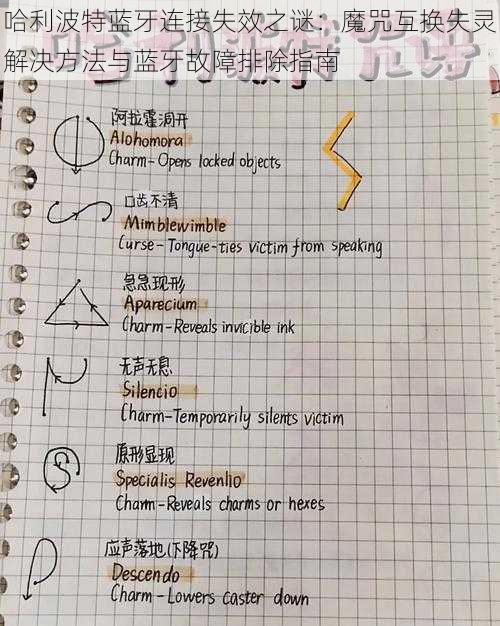 哈利波特蓝牙连接失效之谜：魔咒互换失灵
解决方法与蓝牙故障排除指南
阿拉霍洞开
Alohomora
Charm-Opens locked objects
口齿不清
Mimblewimble
Curse-Tongue-ties victim from speaking
急急现形
Aparecium
Charm-Reveals invicible ink
无声无息
Silencio
Charm-Temporarily silents victim
原形显现
Specialis Revenlio
Charm-Reveals charms or hexes
应声落地(下降咒)
Descendo
Charm-Lowers caster down